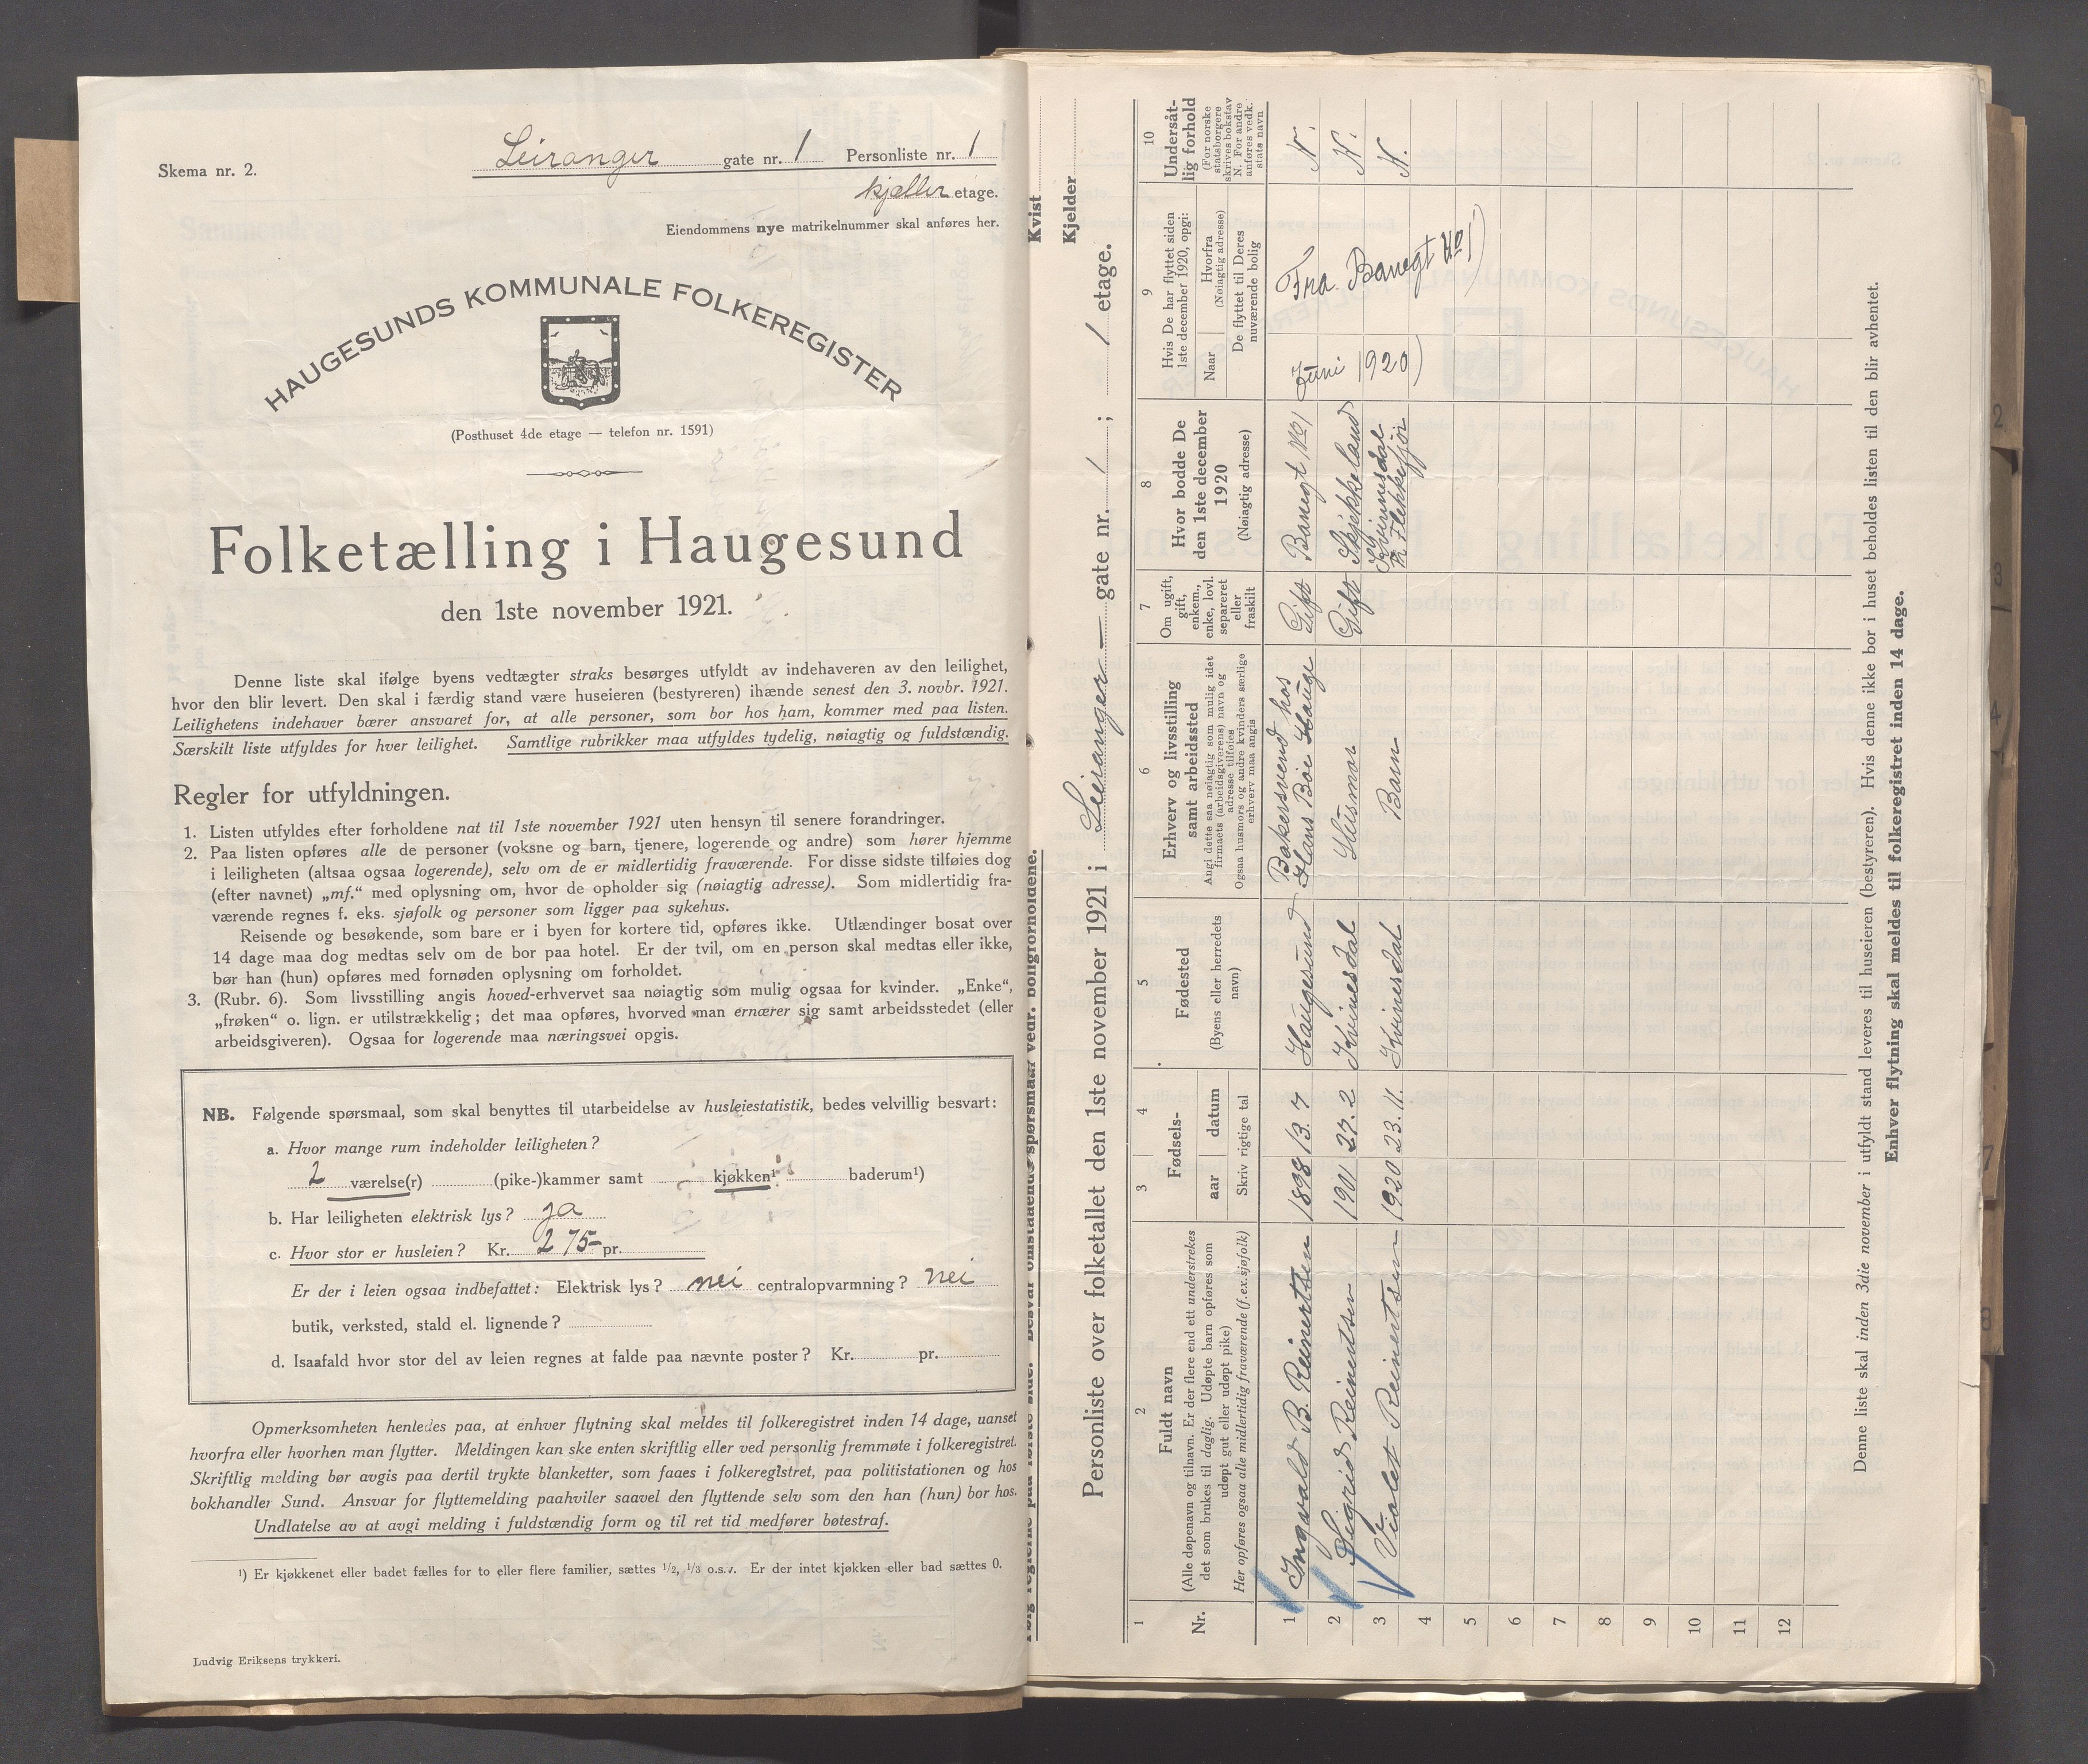 Skema nr. 2.
Leiranger gate nr. 1 Personliste nr. 1
kjæller etage.
Eiendommens nye matrikelnummer skal anføres her.
HAUGESUNDS KOMMUNALE FOLKEREGISTER
(Posthuset 4de etage — telefon nr. 1591)
Folketælling i Haugesund
den 1ste november 1921.
Denne liste skal ifølge byens vedtægter straks besørges utfyldt av indehaveren av den leilighet,
hvor den blir levert. Den skal i færdig stand være huseieren (bestyreren) ihænde senest den 3. novbr. 1921.
Leilighetens indehaver bærer ansvaret for, at alle personer, som bor hos ham, kommer med paa listen.
Særskilt liste utfyldes for hver leilighet. Samtlige rubrikker maa utfyldes tydelig, nøiagtig og fuldstændig.
Regler for utfyldningen.
1. Listen utfyldes efter forholdene nat til 1ste november 1921 uten hensyn til senere forandringer.
2. Paa listen opføres alle de personer (voksne og barn, tjenere, logerende og andre) som hører hjemme
i leiligheten (altsaa ogsaa logerende), selv om de er midlertidig fraværende. For disse sidste tilføies dog
(efter navnet) „mf.“ med oplysning om, hvor de opholder sig (nøiagtig adresse). Som midlertidig fra-
værende regnes f. eks. sjøfolk og personer som ligger paa sykehus.
Reisende og besøkende, som bare er i byen for kortere tid, opføres ikke. Utlændinger bosat over
14 dage maa dog medtas selv om de bor paa hotel. Er der tvil, om en person skal medtas eller ikke,
bør han (hun) opføres med fornøden oplysning om forholdet.
3. (Rubr. 6). Som livsstilling angis hoved-erhvervet saa nøiagtig som mulig ogsaa for kvinder. „Enke“,
„frøken“ o. lign. er utilstrækkelig; det maa opføres, hvorved man ernærer sig samt arbeidsstedet (eller
arbeidsgiveren). Ogsaa for logerende maa næringsvei opgis.
NB. Følgende spørsmaal, som skal benyttes til utarbeidelse av husleiestatistik, bedes velvillig besvart:
a. Hvor mange rum indeholder leiligheten?
2 værelse(r) (pike-)kammer samt kjøkken¹ baderum¹)
b. Har leiligheten elektrisk lys? ja
c. Hvor stor er husleien? Kr. 275- pr.
Er der i leien ogsaa indbefattet: Elektrisk lys? nei centralopvarmning? nei
butik, verksted, stald el. lignende?
d. Isaafald hvor stor del av leien regnes at falde paa nævnte poster? Kr. pr.
Opmerksomheten henledes paa, at enhver flytning skal meldes til folkeregistret inden 14 dage, uanset
hvorfra eller hvorhen man flytter. Meldingen kan ske enten skriftlig eller ved personlig fremmøte i folkeregistret.
Skriftlig melding bør avgis paa dertil trykte blanketter, som faaes i folkeregistret, paa politistationen og hos
bokhandler Sund. Ansvar for flyttemelding paahviler saavel den flyttende selv som den han (hun) bor hos.
Undlatelse av at avgi melding i fuldstændig form og til ret tid medfører bøtestraf.
¹) Er kjøkkenet eller badet fælles for to eller flere familier, sættes 1/2, 1/3 o.s.v. Er der intet kjøkken eller bad sættes 0.
Ludvig Eriksens trykkeri.
Besvar omstaaende spørsmaal vedr. boligforholdene.
Kvist
Kjelder
Personliste over folketallet den 1ste november 1921 i Leiranger gate nr. 1; 1 etage.
1 2 3 4 5 6 7 8 9 10
Nr.
Fuldt navn
(Alle døpenavn og tilnavn. Er der flere end ett understrekes
det som brukes til daglig. Udøpte barn opføres som
udøpt gut eller udøpt pike)
Her opføres ogsaa alle midlertidig fraværende (f.ex.sjøfolk)
Fødsels-
aar datum
Skriv rigtige tal
Fødested
(Byens eller herredets
navn)
Erhverv og livsstilling
samt arbeidssted
Angi dette saa nøiagtig som mulig idet
firmaets (arbeidsgiverens) navn og
adresse tilføies
Ogsaa husmors og andre kvinders særlige
erhverv maa angis
Om ugift,
gift,
enkem.,
enke, lovl.
separeret
eller
fraskilt
Hvor bodde De
den 1ste december
1920
(Nøiagtig adresse)
Hvis De har flyttet siden
1ste december 1920, opgi:
Naar Hvorfra
(Nøiagtig adresse)
De flyttet til Deres
nuværende bolig
Undersåt-
lig forhold
(For norske
statsborgere
skrives bokstav
N. For andre
anføres vedk.
stats navn
1 Ingvald B. Reinertsen 1898 13. 7 Haugesund Bakersvend hos Hans Bøe Hauge Gift Banegt No 1 Juni 1920) Fra Banegt No 1) N.
2 Sigrid Reinertsen 1901 27. 2 Kvinesdal Husmor Gift Skjekkeland N.
3 Violet Reinertsen 1920 23. 11. Kvinesdal Barn Kvinesdal pr Flekkefjor N.
4
5
6
7
8
9
10
11
12
Denne liste skal inden 3die november i utfyldt stand leveres til huseieren (bestyreren). Hvis denne ikke bor i huset beholdes listen til den blir avhentet.
Enhver flytning skal meldes til folkeregistret inden 14 dage.